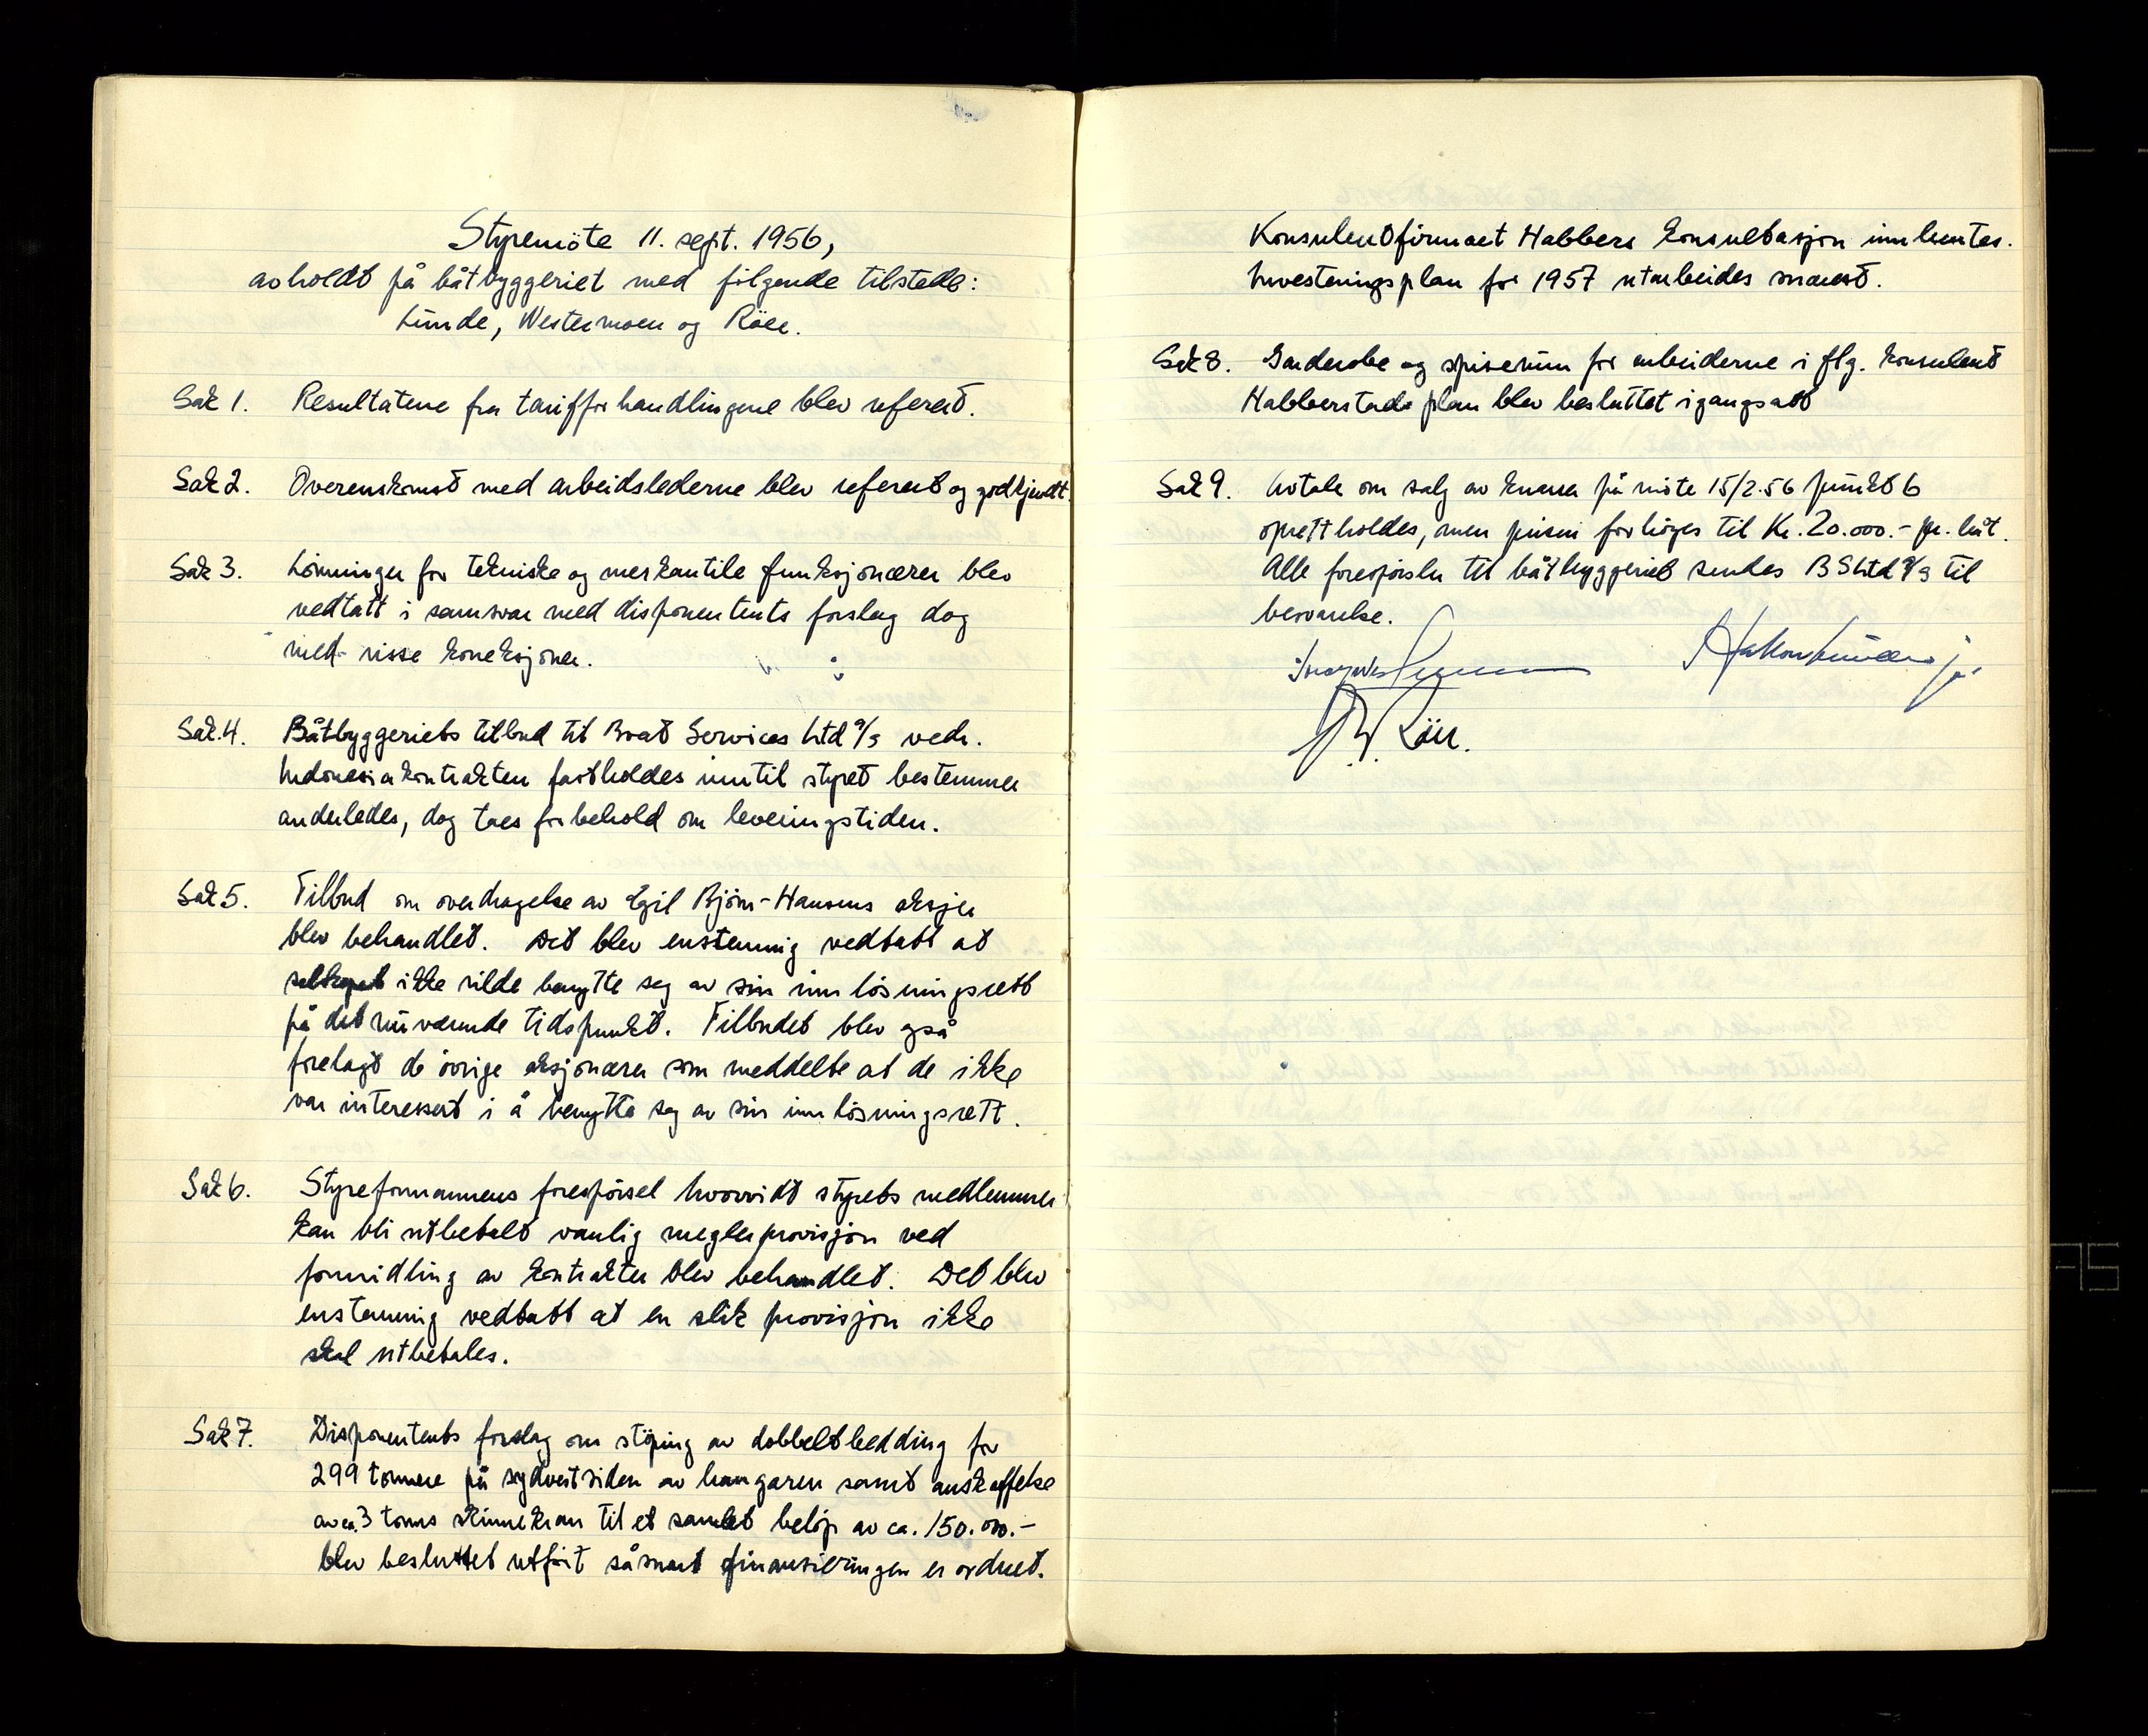 Styremöte 11. sept. 1956,
avholdt på båtbyggeriet med følgende tilstede:
Lünde, Westermoen og Röer.
Sak 1. Resultatene fra tarifforhandlingene blev referert.
Sak 2. Overenskomst med arbeidslederne blev referert og godkjendt.
Sak 3. Lönninger for tekniske og merkantile funksjonærer blev
vedtatt i samsvar med disponentents forslag dog
med visse koreksjoner.
Sak 4. Båtbyggeriets tilbud til Boat Services Ltd A/S vedr.
Indonesiakontrakten fastholdes inntil styret bestemmer
anderledes, dog taes forbehold om leveringstiden.
Sak 5. Tilbud om overdragelse av Egil Björn-Hansens aksjer
blev behandlet. Det blev enstemmig vedtatt at
selskapet ikke vilde benytte seg av sin innlösningsrett
på det nüværende tidspunkt. Tilbudet blev også
forelagt de övrige aksjonærer som meddelte at de ikke
var interessert i å benytte seg av sin innlösningsrett.
Sak 6. Styreformannens forespörsel hvorvidt styrets medlemmer
kan bli utbetalt vanlig meglerprovisjon ved
formidling av kontrakter blev behandlet. Det blev
enstemmig vedtatt at en slik provisjon ikke
skal utbetales.
Sak 7. Disponentents forslag om stöping av dobbeltbedding for
299 tonnere på sydvestsiden av hangaren samt anskaffelse
av ca. 3 tonns skinnekran til et samlet belöp av ca. 150.000.-
blev besluttet utfört såsnart finansieringen er ordnet.
Konsulentfirmaet Habbers konsultasjon innhentes.
Investeringsplan for 1957 utarbeides snarest.
Sak 8. Garderobe og spiserum for arbeiderne i flg. konsulent
Habberstads plan blev besluttet igangsatt
Sak 9. Avtale om salg av knarrer på möte 15/2.56 pünkt 6
oprettholdes, men prisen forhöyes til Kr. 20.000.- pr. båt.
Alle forespörsler til båtbyggeriet sendes BSLtd A/S til
besvarelse.
Håkon Lünde jr.
Röer.